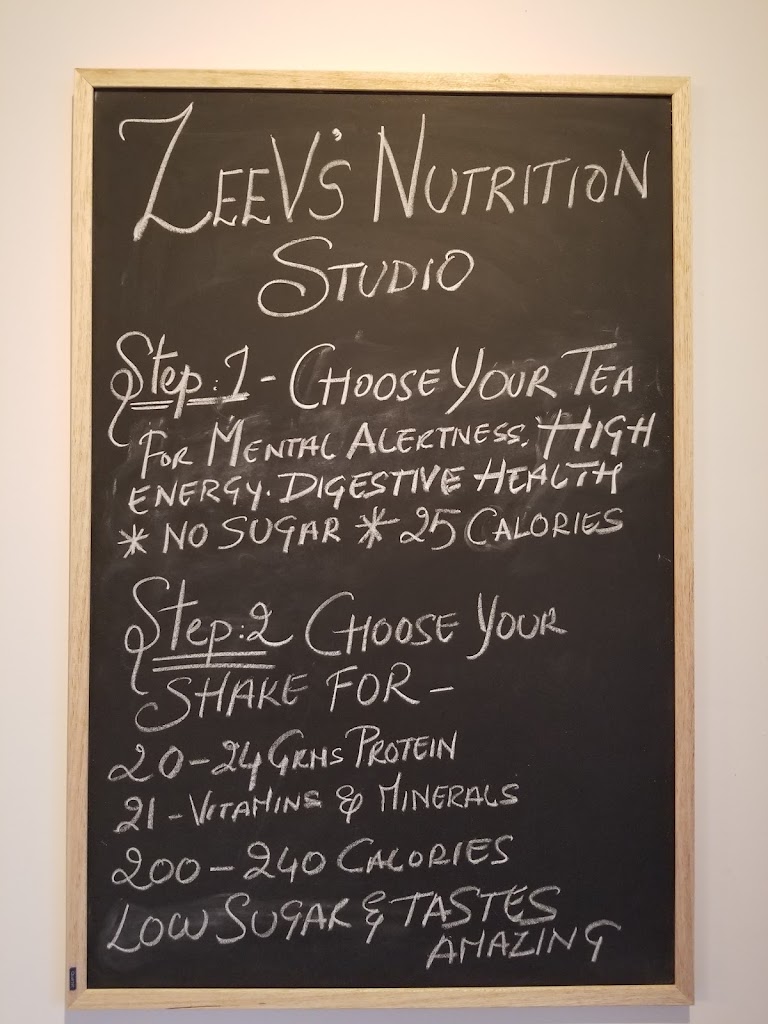 ZEEV'S NUTRITION
STUDIO
Step:1 - CHOOSE YOUR TEA
FOR MENTAL ALERTNESS. HIGH
ENERGY. DIGESTIVE HEALTH
* NO SUGAR * 25 CALORIES
Step:2 CHOOSE YOUR
SHAKE FOR -
20-24 GRMS PROTEIN
21-VITAMINS & MINERALS
200-240 CALORIES
LOW SUGAR & TASTES
AMAZING